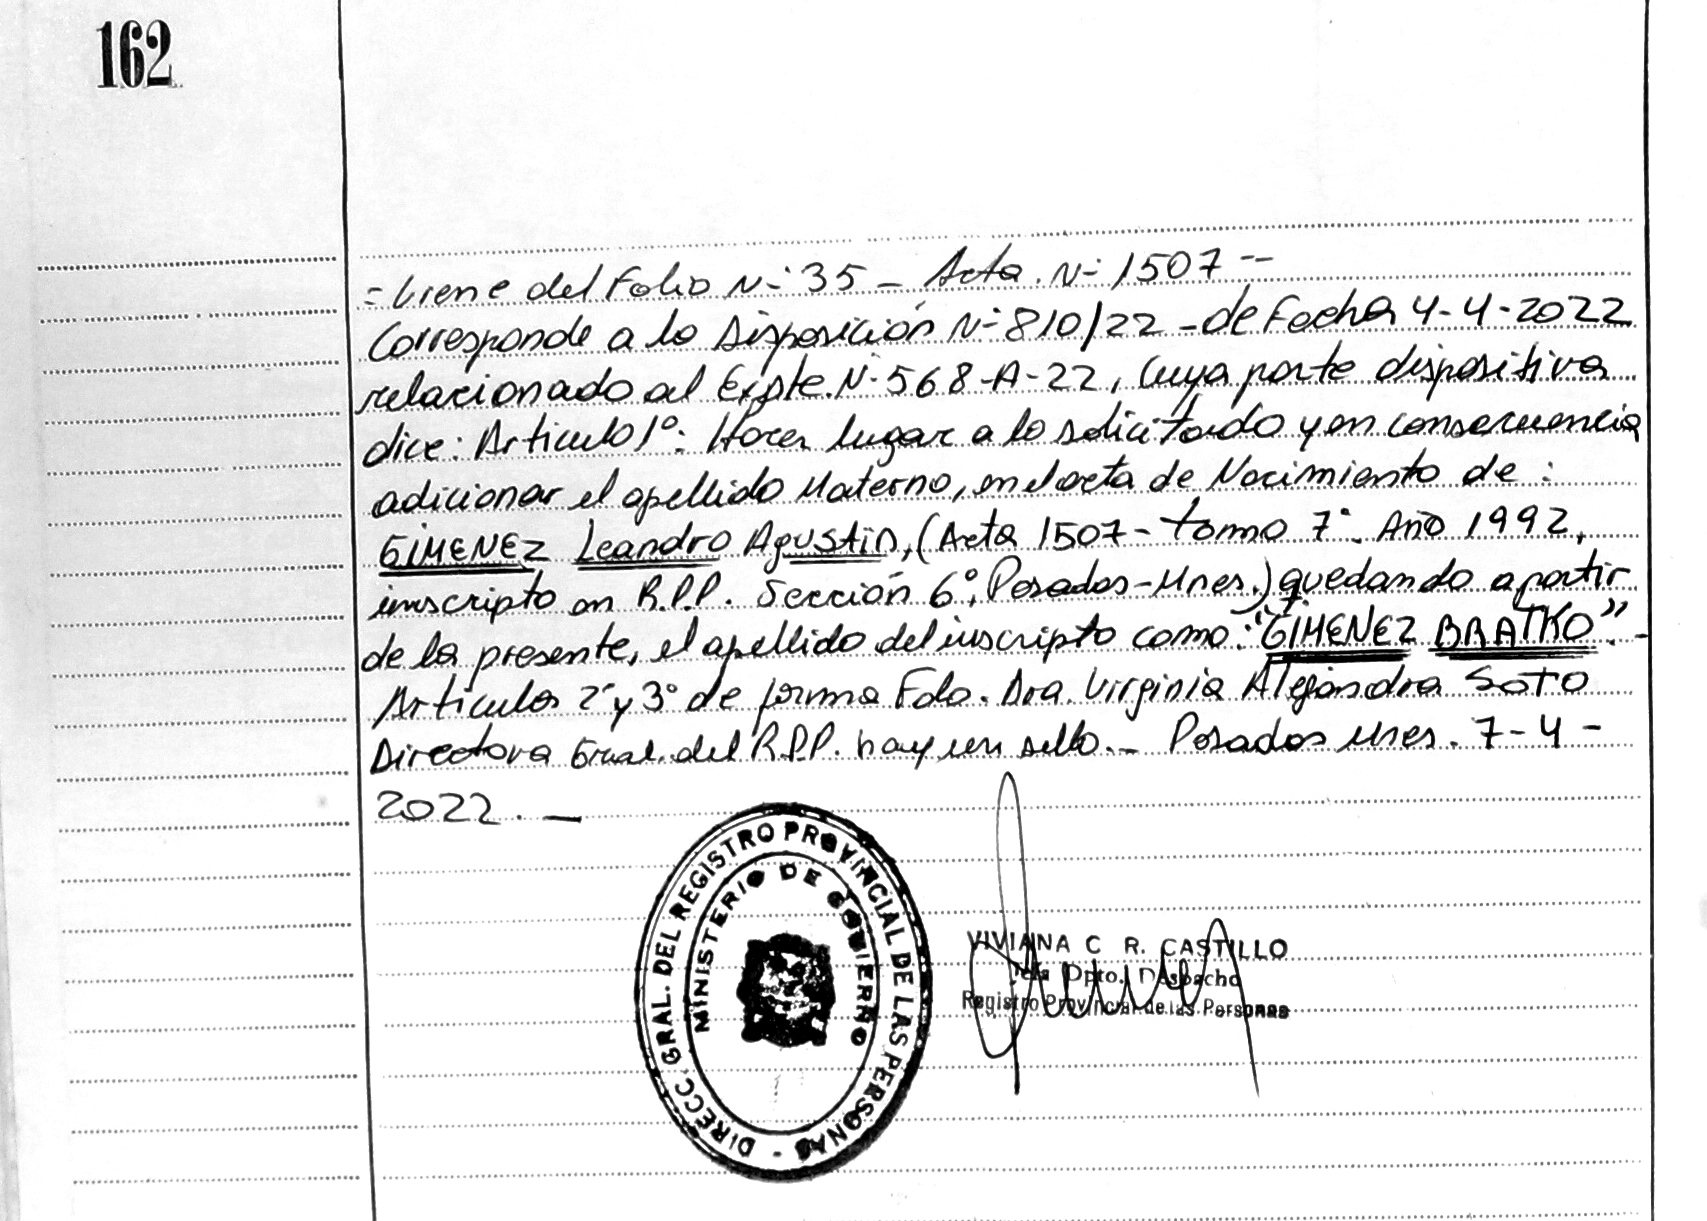 162
- Viene del Folio N° 35 - Acta. N° 1507 --
Corresponde a la Disposición N° 810/22 - de Fecha 4-4-2022
relacionado al Expte. N° 568-A-22, Cuya parte dispositiva
dice: Articulo 1°: Hacer lugar a lo solicitado y en consecuencia
adicionar el apellido Materno, en el acta de Nacimiento de :
GIMENEZ Leandro Agustin, (Acta 1507 - tomo 7° . Año 1992,
inscripto en R.P.P. Sección 6°, Posadas - Mnes.) quedando a partir
de la presente, el apellido del inscripto como: "GIMENEZ BRATKO" . -
Articulos 2° y 3° de forma Fdo. Dra. Virginia Alejandra Soto
Directora Gral. del R.P.P. hay un sello. - Posadas Mnes. 7-4-
2022. -
DIRECC. GRAL. DEL REGISTRO PROVINCIAL DE LAS PERSONAS -
MINISTERIO DE GOBIERNO
VIVIANA C R. CASTILLO
Jefa Dpto. Despacho
Registro Provincial de las Personas